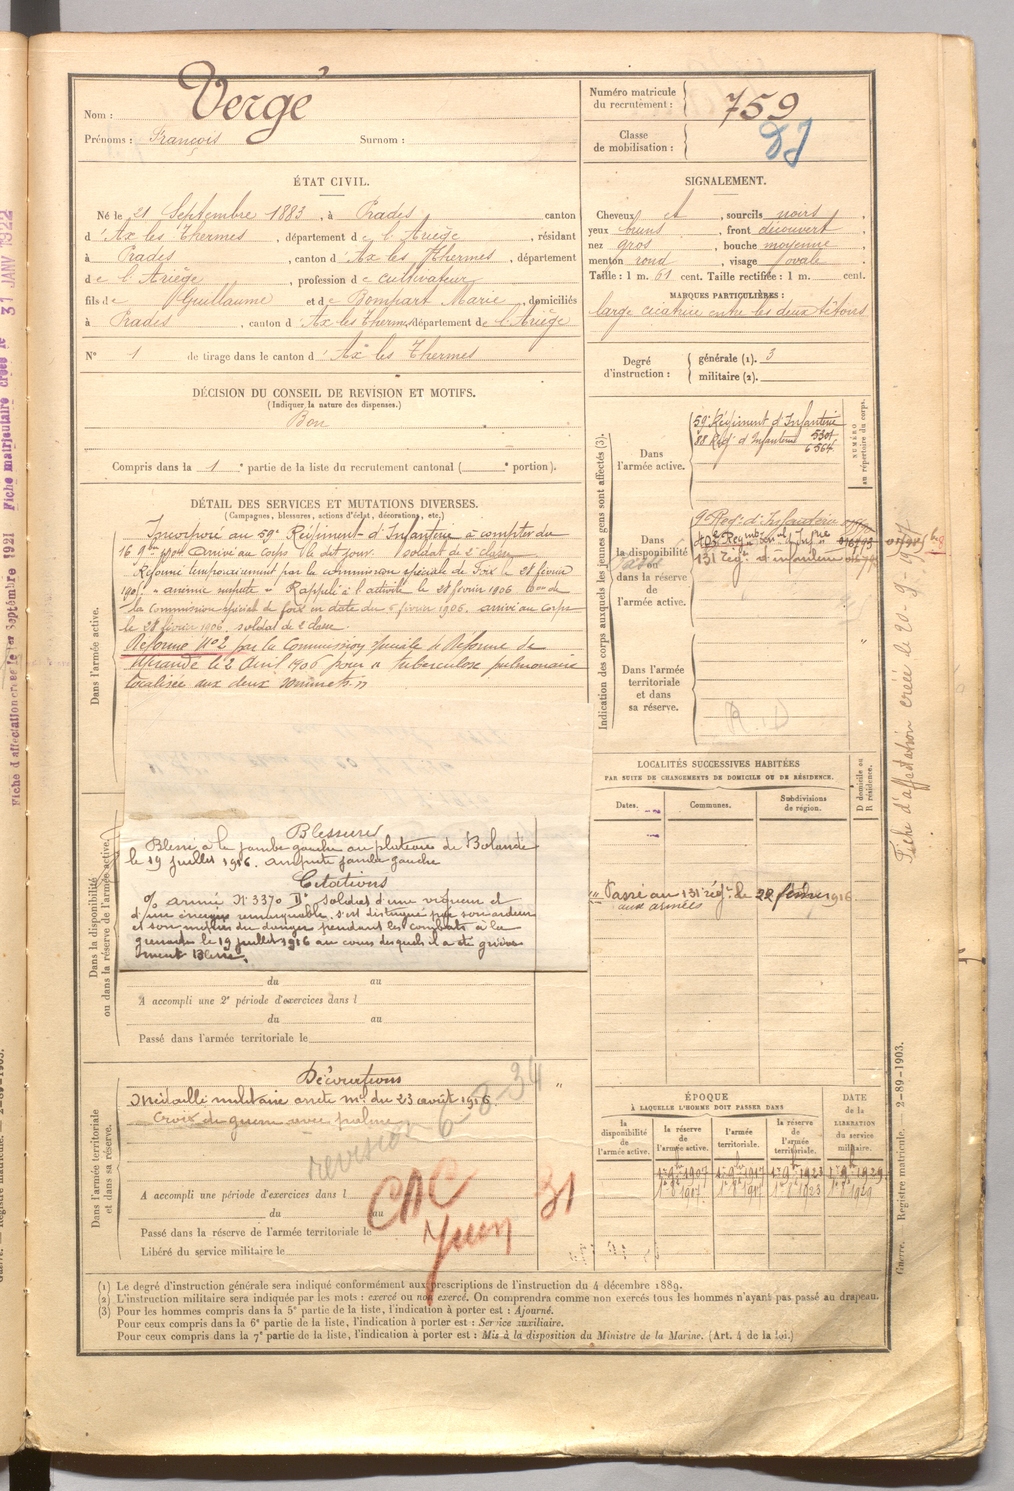 Nom : Vergé
Prénoms : François Surnom :
Numéro matricule du recrutement : 759
Classe de mobilisation :
ÉTAT CIVIL.
Né le 21 Septembre 1883, à Prades canton
d'Ax les Thermes, département de l'Ariège, résidant
à Prades, canton d'Ax les Thermes, département
de l'Ariège, profession de cultivateur
fils de Guillaume et de Bompart Marie, domiciliés
à Prades, canton d'Ax les Thermes, département de l'Ariège
N° 1 de tirage dans le canton d'Ax les Thermes
SIGNALEMENT.
Cheveux et, sourcils noirs,
yeux bruns, front découvert,
nez gros, bouche moyenne,
menton rond, visage ovale.
Taille : 1 m. 61 cent. Taille rectifiée : 1 m. cent.
MARQUES PARTICULIÈRES :
large cicatrice entre les deux tétons
Degré d'instruction :
générale (1). 3
militaire (2).
DÉCISION DU CONSEIL DE REVISION ET MOTIFS.
(Indiquer la nature des dispenses.)
Bon
Compris dans la 1e partie de la liste du recrutement cantonal ( e portion).
DÉTAIL DES SERVICES ET MUTATIONS DIVERSES.
(Campagnes, blessures, actions d'éclat, décorations, etc.)
Dans l'armée active.
Incorporé au 59e Régiment d'Infanterie à compter du
16 9bre 1904 Arrivé au Corps le dit jour. soldat de 2e classe
Réformé temporairement par la commission spéciale de Foix le 28 février
1905. Rappelé à l'activité le 28 février 1906
la Commission spéciale de foix en date du 5 février 1906. arrivé au Corps
le 28 février 1906. soldat de 2 classe
Réformé N°2 par la Commission spéciale de Réforme de
Mirande le 2 Avril 1906 pour "Tuberculose pulmonaire
localisée aux deux sommets"
Dans la disponibilité ou dans la réserve de l'armée active.
Blessures
Blessé à la jambe gauche au plateau de Bolante
le 19 juillet 1916. amputé jambe gauche
Citations
O/ armée N° 3370 D° Soldat d'une vigueur et
d'une énergie remarquable. s'est distingué par son ardeur
et son mépris du danger pendant les combats à la
grenade le 19 juillet 1916 au cours desquels il a été griève-
ment Blessé.
du au
A accompli une 2e période d'exercices dans l
du au
Passé dans l'armée territoriale le
Dans l'armée territoriale et dans sa réserve.
Décorations
Médaille militaire arrêté mel du 23 août 1916.
Croix de guerre avec palme
revision 6-8-34
A accompli une période d'exercices dans l
du au
CAC 31
Passé dans la réserve de l'armée territoriale le
Libéré du service militaire le
Indication des corps auxquels les jeunes gens sont affectés (3).
NUMÉRO au répertoire du corps.
Dans l'armée active.
59e Régiment d'Infanterie
88 Rgt d'Infanterie 5301
6564
Dans la disponibilité ou dans la réserve de l'armée active.
9e Reg. d'Infanterie
131 Régt d'infanterie
Dans l'armée territoriale et dans sa réserve.
R.D
LOCALITÉS SUCCESSIVES HABITÉES
PAR SUITE DE CHANGEMENTS DE DOMICILE OU DE RÉSIDENCE.
Dates.
Communes.
Subdivisions de région.
D domicile ou R résidence.
Passé au 131 régt. le 22 février 1916
aux armées
ÉPOQUE
À LAQUELLE L'HOMME DOIT PASSER DANS
la disponibilité de l'armée active.
la réserve de l'armée active.
l'armée territoriale.
la réserve de l'armée territoriale.
DATE de la LIBÉRATION du service militaire.
1er 9bre 1907 1er 9bre 1917 1er 9bre 1923 1er 9bre 1929
(1) Le degré d'instruction générale sera indiqué conformément aux prescriptions de l'instruction du 4 décembre 1889.
(2) L'instruction militaire sera indiquée par les mots : exercé ou non exercé. On comprendra comme non exercés tous les hommes n'ayant pas passé au drapeau.
(3) Pour les hommes compris dans la 5e partie de la liste, l'indication à porter est : Ajourné.
Pour ceux compris dans la 6e partie de la liste, l'indication à porter est : Service auxiliaire.
Pour ceux compris dans la 7e partie de la liste, l'indication à porter est : Mis à la disposition du Ministre de la Marine. (Art. 4 de la loi.)
Fiche d'affectation créée le 1er Septembre 1921 Fiche matriculaire créée le 31 JANV 1922
Fiche d'affectation créée le 20-9-1927
Guerre. — Registre matricule. — 2-89-1903.